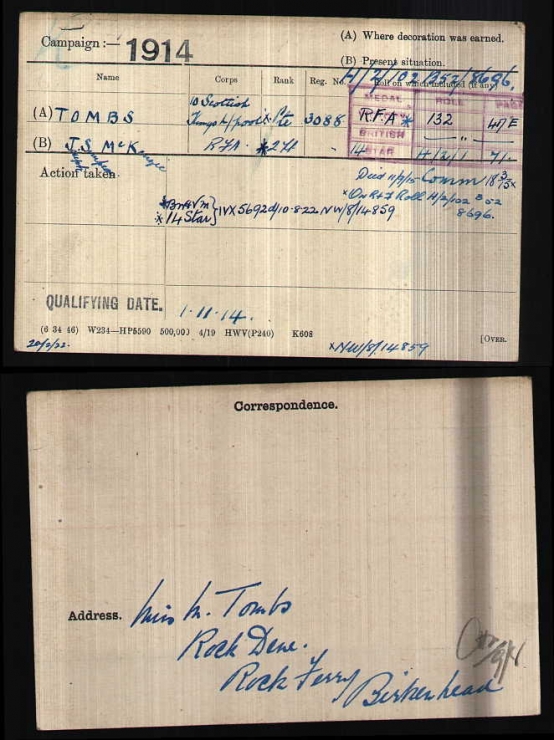 Campaign :— 1914
(A) Where decoration was earned.
(B) Present situation.
H/2/102 B52/8696.
Name Corps Rank Reg. No. Roll on which included (if any)
MEDAL ROLL PAGE
(A) TOMBS 10 Scottish L'pool R. Pte 3088 R.F.A * 132 47E
BRITISH — " —
(B) J.S. McKenzie R.F.A. *2/Lt - 14 STAR H/2/1 71
Joseph Simpson
Action taken
Died 11/9/15 Comm 18/3/15 x
*On R & F Roll H/2/102 B52
8696.
*BM & VM
*14 Star } IVX 5692 d/10-8-22. NW/8/14859
QUALIFYING DATE. 1.11.14.
(6 34 46) W234—HP5590 500,000 4/19 HWV(P240) K608 [OVER.
*NW/8/14859
Correspondence.
Address. Miss M. Tombs
Rock Dene.
Rock Ferry
Birkenhead